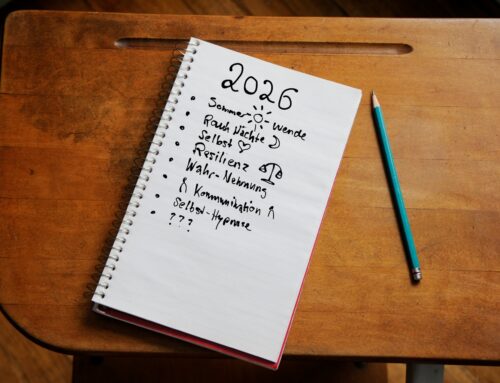 2026
Sommer Wende
Rauh Nächte
Selbst
Resilienz
Wahr-Nehmung
Kommunikation
Selbst-Hypnose
???